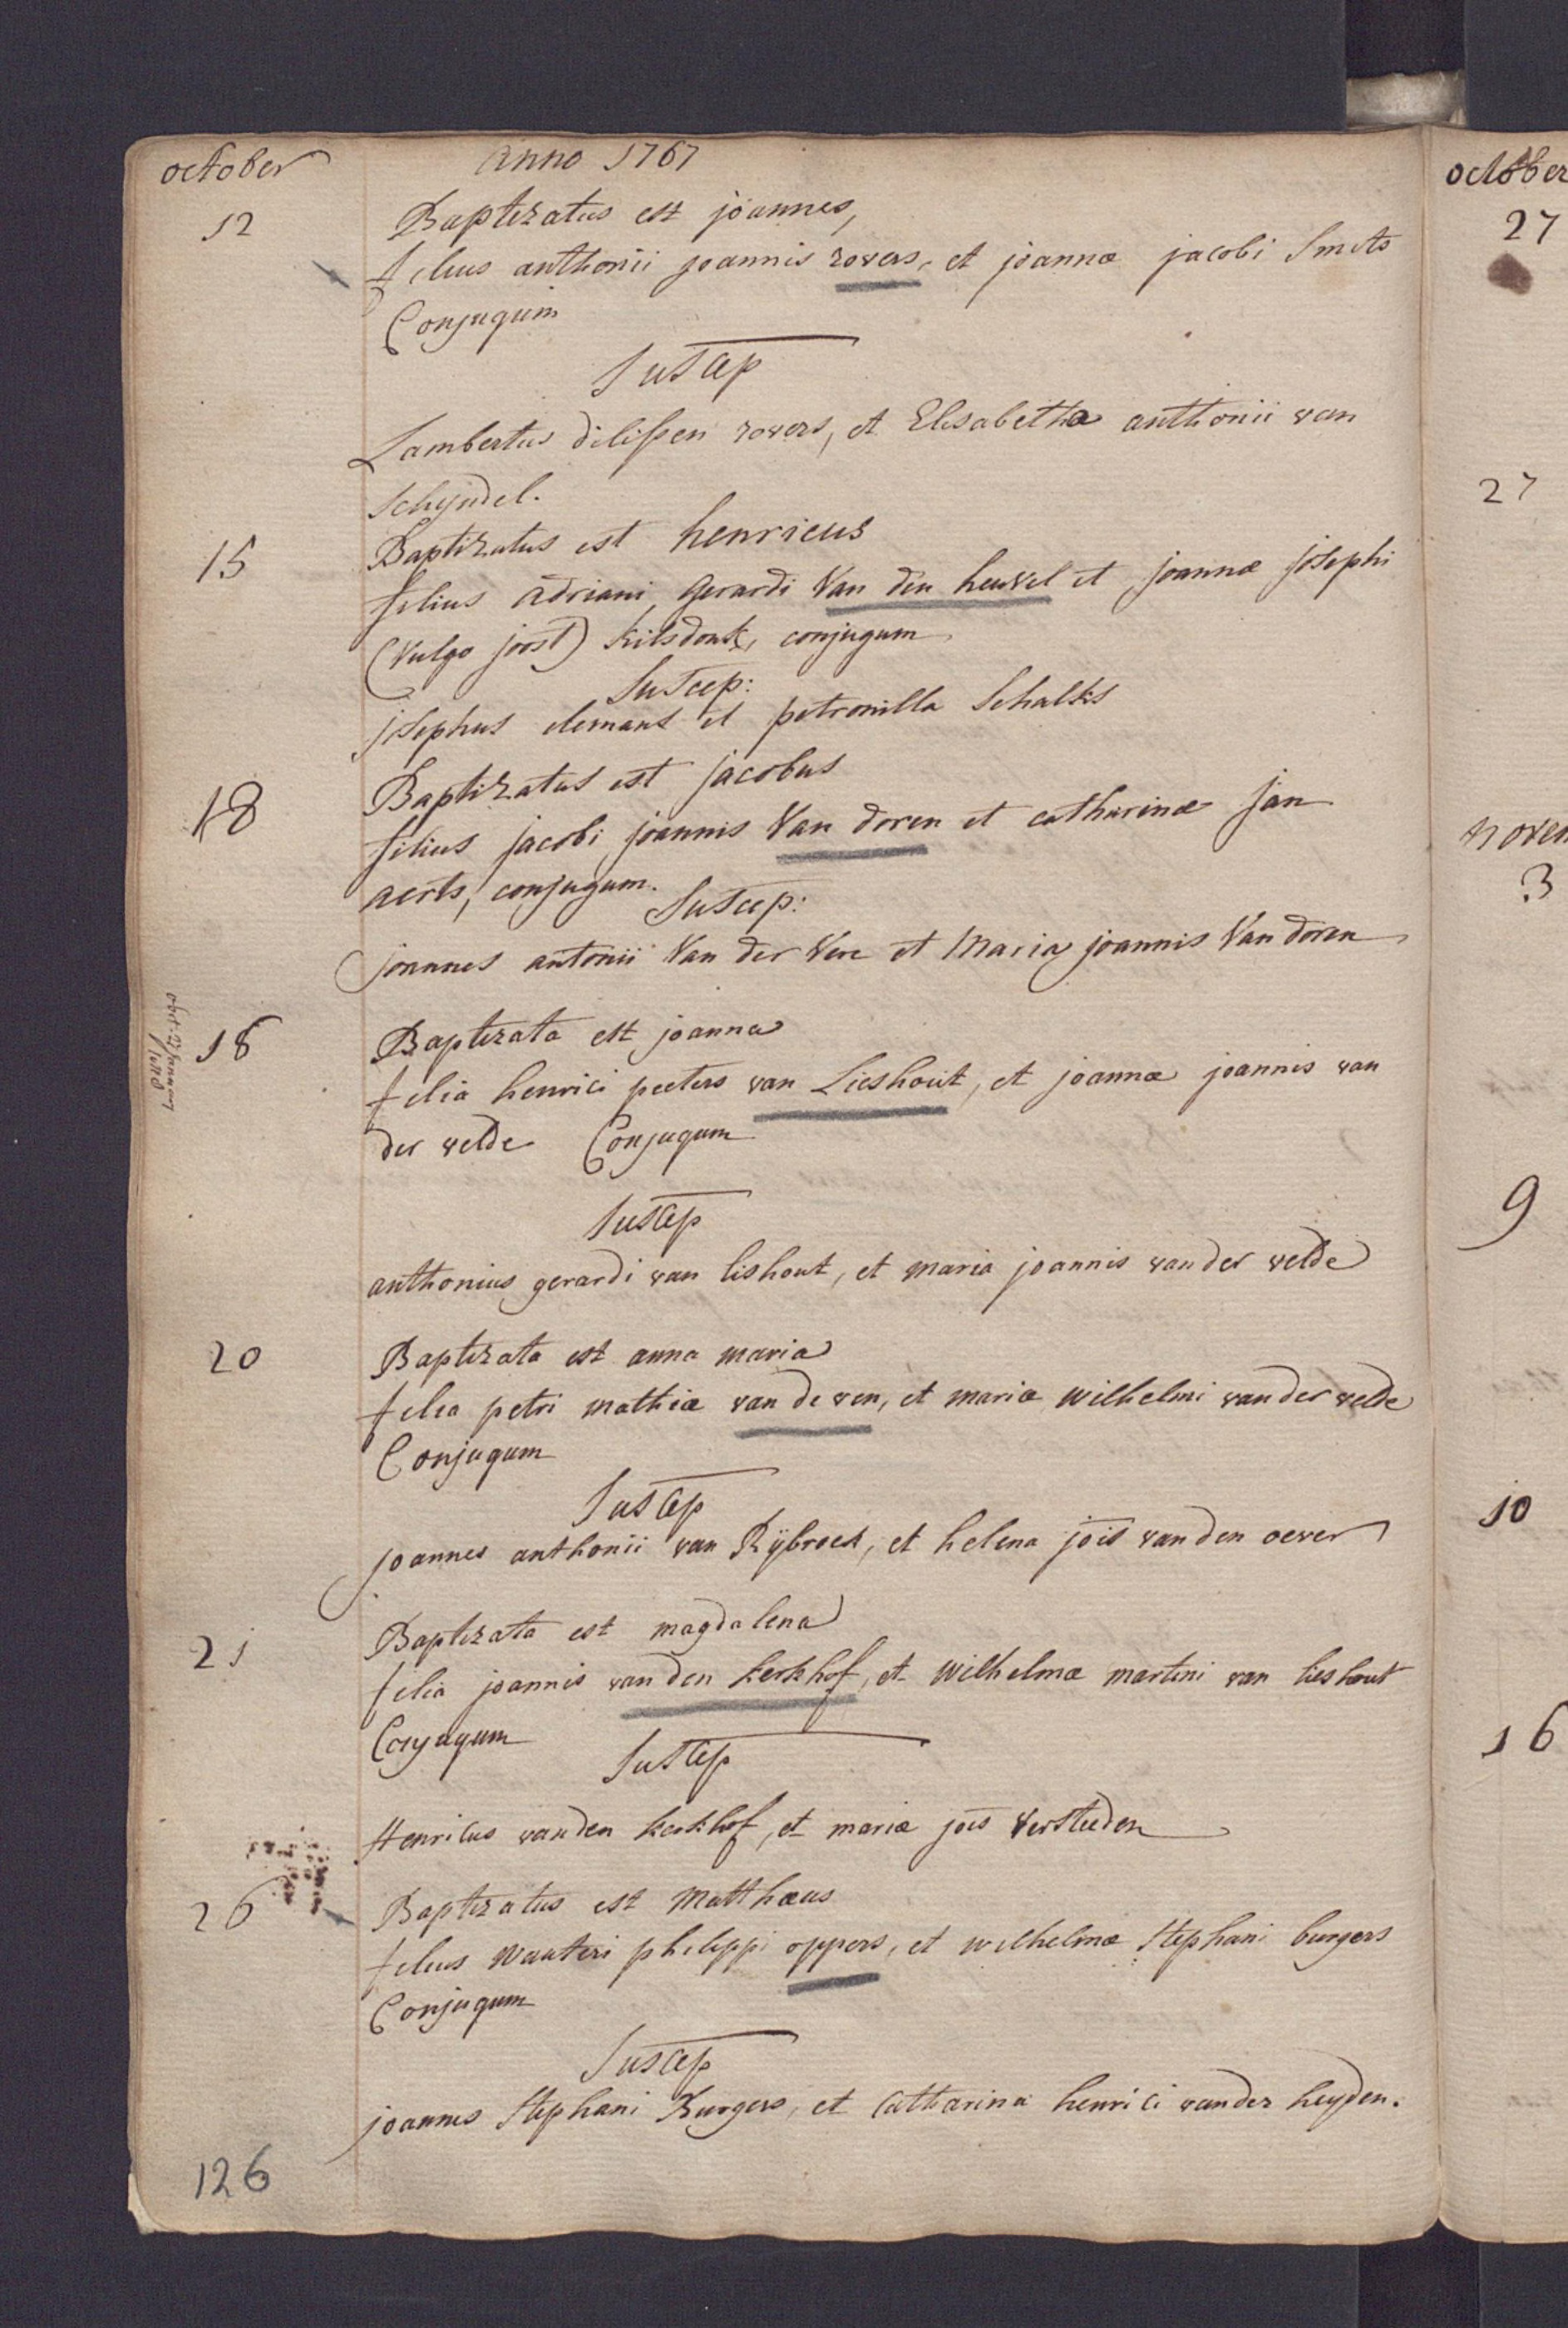 october
anno 1767
12
Baptizatus est joannes,
filius anthonii joannis rovers, et joannæ jacobi Smits
Conjugum
Suscep
Lambertus dilissen rovers, et Elisabetha anthonii van
Schyndel.
15
Baptizatus est henricus
filius adriani, gerardi Van den heuvel et joannæ josephi
(vulgo joost) kilsdonk, conjugum
Suscep:
josephus clemans et petronilla Schalks
18
Baptizatus est jacobus
filius jacobi joannis Van doren et catharinæ jan
aerts, conjugum.
Suscep:
joannes antonii Van der Vere et Maria joannis Van doren
18
Baptizata est joanna
filia henrici peeters van Lieshout, et joannæ joannis van
der velde Conjugum
Suscep
anthonius gerardi van lishout, et maria joannis vander velde
20
Baptizata est anna maria
filia petri mathiæ van de ven, et mariæ wilhelmi vander velde
Conjugum
Suscep
joannes anthonii van Rijbroek, et helena jois vanden oever
21
Baptizata est magdalena
filia joannis vanden kerkhof, et wilhelmæ martini van lieshout
Conjugum
Suscep
Henricus vanden kerkhof, et mariæ jois Versteeden
26
Baptizatus est Matthæus
filius wauteri philippi oppers, et wilhelmæ Stephani burgers
Conjugum
Suscep
joannes Stephani Burgers, et Catharina henrici vander heyden.
126
october
27
27
novem
3
9
10
16